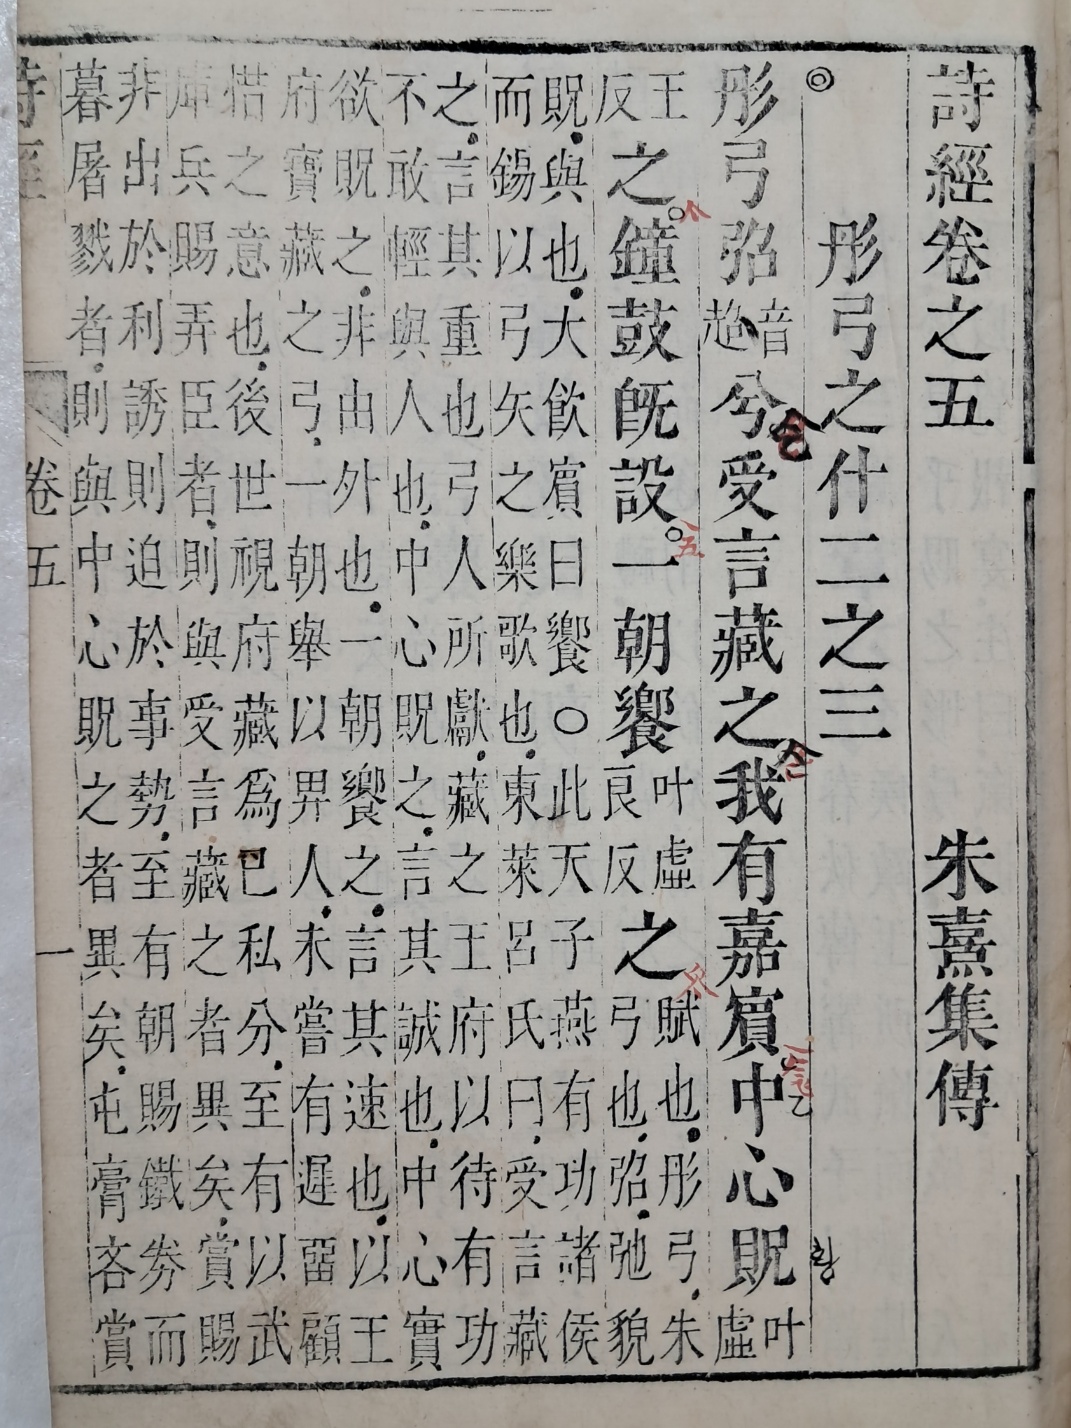 詩經卷之五 朱熹集傳
◎彤弓之什二之三
彤弓弨音超兮受言藏之我有嘉賓中心貺叶虛
王反之鐘鼓旣設一朝饗叶虛良反之賦也彤弓朱弓也弨弛貌
貺與也大飲賓曰饗○此天子燕有功諸侯
而錫以弓矢之樂歌也東萊呂氏曰受言藏
之言其重也弓人所獻藏之王府以待有功
不敢輕與人也中心貺之言其誠也中心實
欲貺之非由外也一朝饗之言其速也以王
府寶藏之弓一朝舉以畀人未嘗有遲畱顧
惜之意也後世視府藏爲己私分至有以武
庫兵賜弄臣者則與受言藏之者異矣賞賜
非出於利誘則迫於事勢至有朝賜鐵券而
暮屠戮者則與中心貺之者異矣屯膏吝賞
詩經 卷五 一